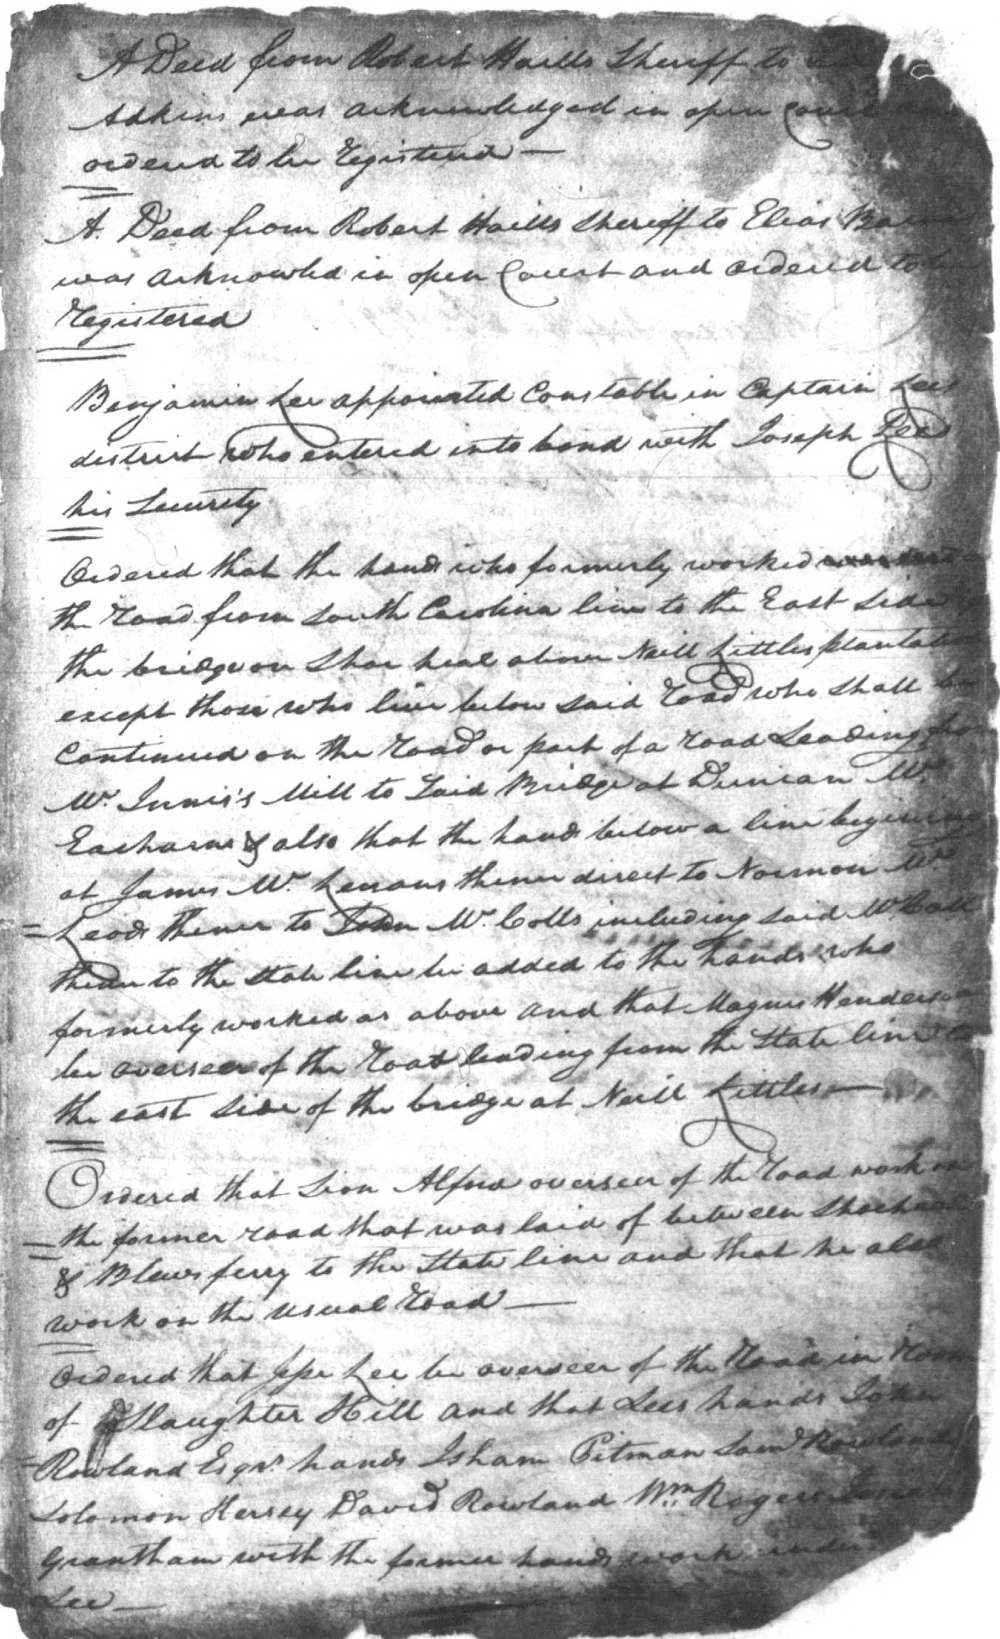 A Deed from Robert Haills Sheriff to
Adkins was acknowledged in open Court
ordered to be Registered —
A. Deed from Robert Haills Sheriff to Elias
was acknowled in open Court and ordered to be
Registered
Benjamin Lee appointed Constable in Captain Lees
district who entered into bond with Joseph Lee
his Security
Ordered that the hands who formerly worked
the road from South Carolina line to the East side
the bridge on Shoe heal above Neill Littles plantation
except those who live below said Road who shall be
Continued on the road or part of a road Leading from
Mc. Innis's Mill to Said Bridge at Duncan Mc.
Eacharns & also that the hands below a line begining
at James Mc. thence direct to Normon Mc.
Leods thence to John Mc. Colls including said Mc. Coll
thence to the State line be added to the hands who
formerly worked as above and that Magnus Henderson
be overseer of the Road leading from the State line to
the east side of the bridge at Neill Littles —
Ordered that Sion Alford overseer of the road work on
the former road that was laid of between Shoeheal
& Blews ferry to the State line and that he also
work on the usual Road —
Ordered that Jesse Lee be overseer of the Road in Room
of Slaughter Hill and that Lees hands John
Rowland Esqr. hands Isham Pitman Saml Rowland
Solomon Hersey David Rowland Wm Rogers
Grantham with the former hands work under
Lee —